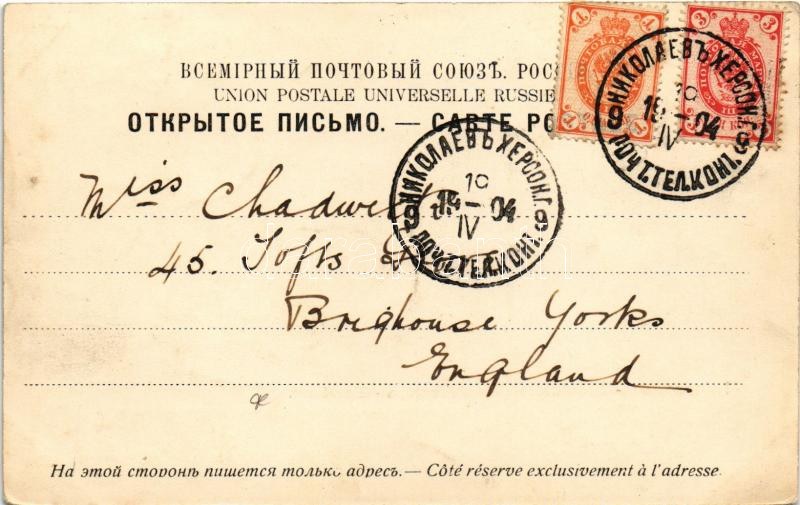 ВСЕМІРНЫЙ ПОЧТОВЫЙ СОЮЗЪ. РОС
UNION POSTALE UNIVERSELLE RUSSIE
ОТКРЫТОЕ ПИСЬМО. — CARTE PO
4 4
3 3
НИКОЛАЕВЪ ХЕРСОН.Г.
10
19 — 04
IV
9 ПОЧТ.ТЕЛ.КОНТ. 9
НИКОЛАЕВЪ ХЕРСОН.Г.
10
19 — 04
IV
9 ПОЧТ.ТЕЛ.КОНТ. 9
Miss Chadwick
45. Tofts
Brighouse Yorks
England
На этой сторонѣ пишется только адресъ. — Côté réserve exclusivement à l'adresse.